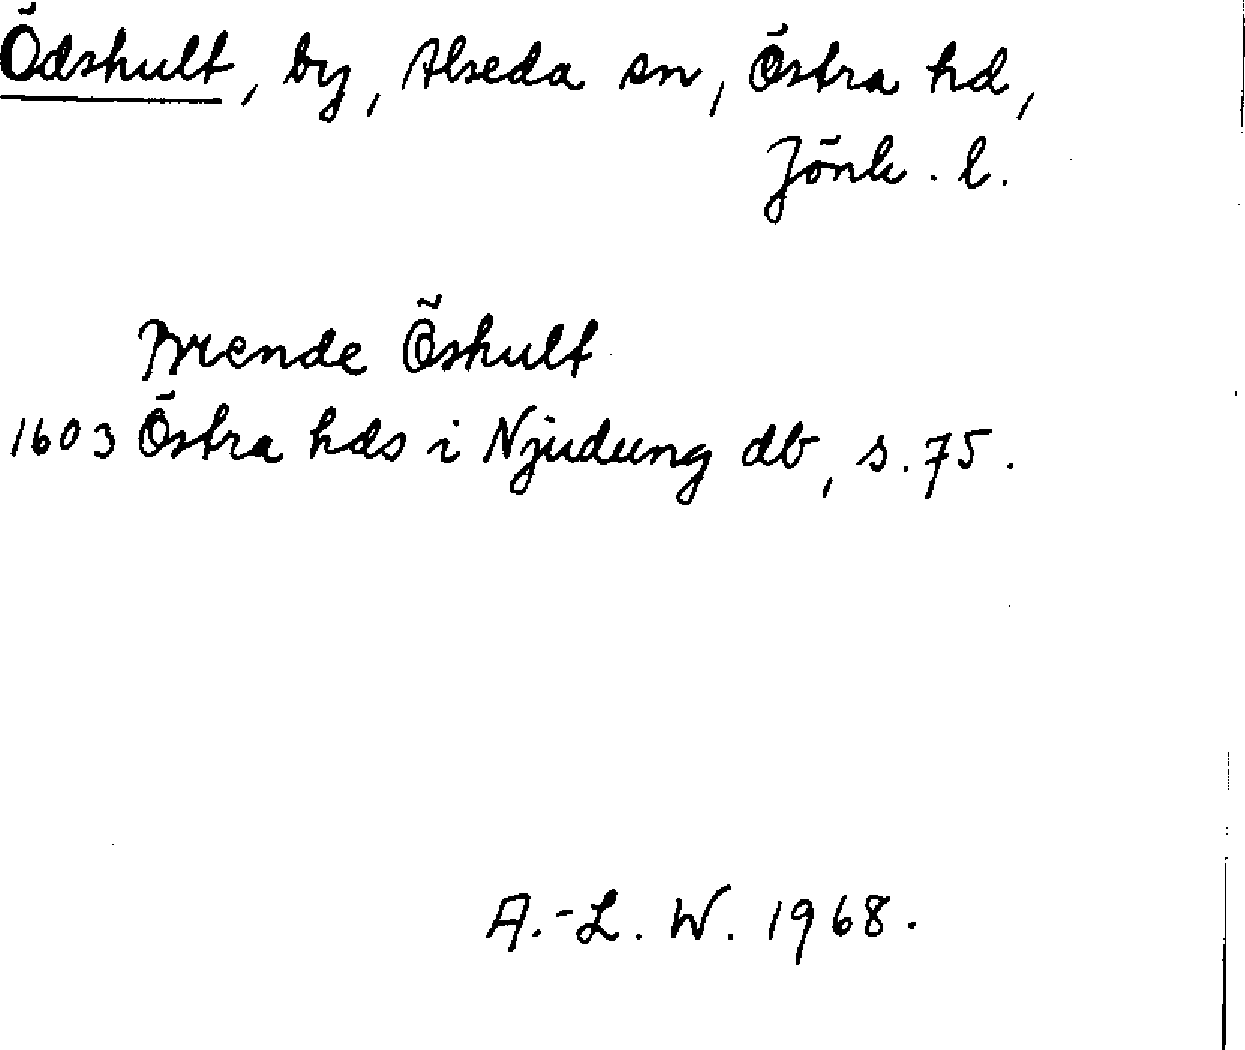 Ödshult, by, Alseda sn, Östra hd,
Jönk. l.
Brende Öshult
1603 Östra hds i Njudung db, s. 75.
A.-L. W. 1968.